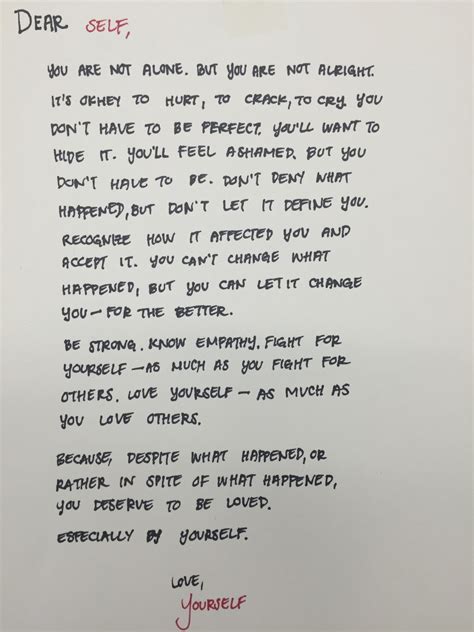 DEAR SELF,
YOU ARE NOT ALONE. BUT YOU ARE NOT ALRIGHT.
IT'S OKHEY TO HURT, TO CRACK, TO CRY. YOU
DON'T HAVE TO BE PERFECT. YOU'LL WANT TO
HIDE IT. YOU'LL FEEL ASHAMED. BUT YOU
DON'T HAVE TO BE. DON'T DENY WHAT
HAPPENED, BUT DON'T LET IT DEFINE YOU.
RECOGNIZE HOW IT AFFECTED YOU AND
ACCEPT IT. YOU CAN'T CHANGE WHAT
HAPPENED, BUT YOU CAN LET IT CHANGE
YOU — FOR THE BETTER.
BE STRONG. KNOW EMPATHY. FIGHT FOR
YOURSELF — AS MUCH AS YOU FIGHT FOR
OTHERS. LOVE YOURSELF — AS MUCH AS
YOU LOVE OTHERS.
BECAUSE, DESPITE WHAT HAPPENED, OR
RATHER IN SPITE OF WHAT HAPPENED,
YOU DESERVE TO BE LOVED.
ESPECIALLY BY YOURSELF.
LOVE,
YOURSELF